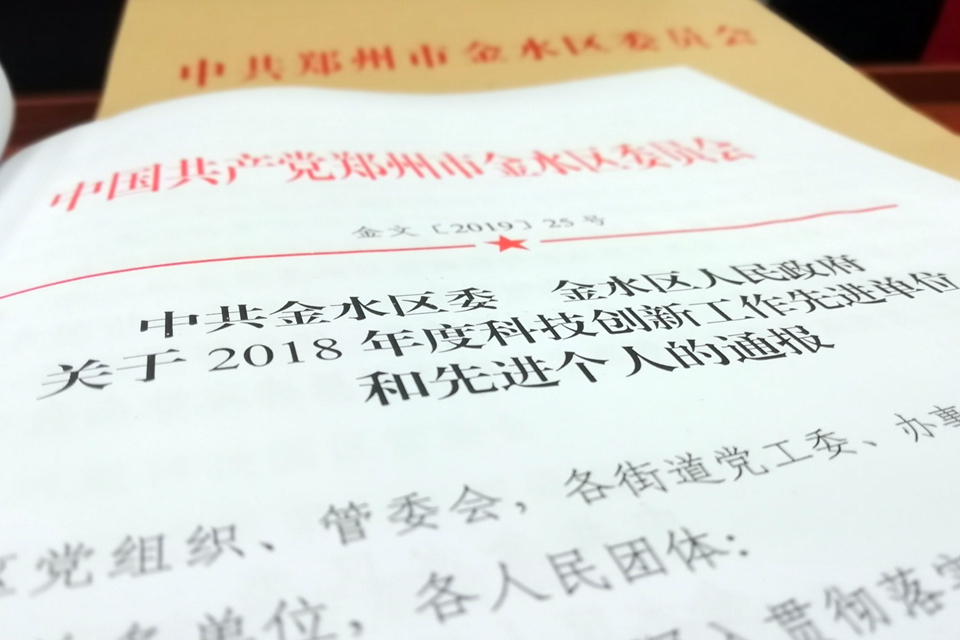 中共郑州市金水区委员会
中国共产党郑州市金水区委员会
金文〔2019〕25号
中共金水区委 金水区人民政府
关于2018年度科技创新工作先进单位
和先进个人的通报
党组织、管委会，各街道党工委、办事
单位，各人民团体：
贯彻落实